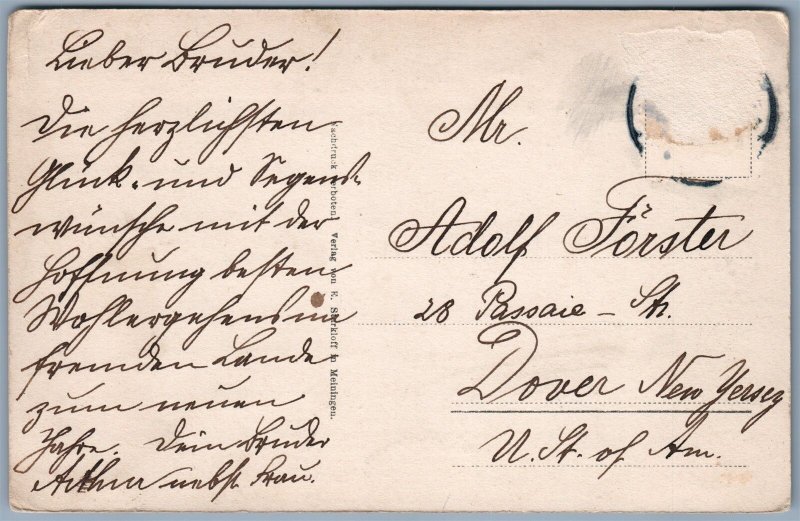 Lieber Bruder!
Die herzlichsten
Glück- und Segens-
wünsche mit der
Hoffnung besten
Wohlergehens im
fremden Lande
zum neuen
Jahre. Dein Bruder
nebst Frau.
Nachdruck verboten! Verlag von K. in Meiningen.
Mr.
Adolf Förster
28 Passaie - St.
Dover New Yersey
U. St. of Am.